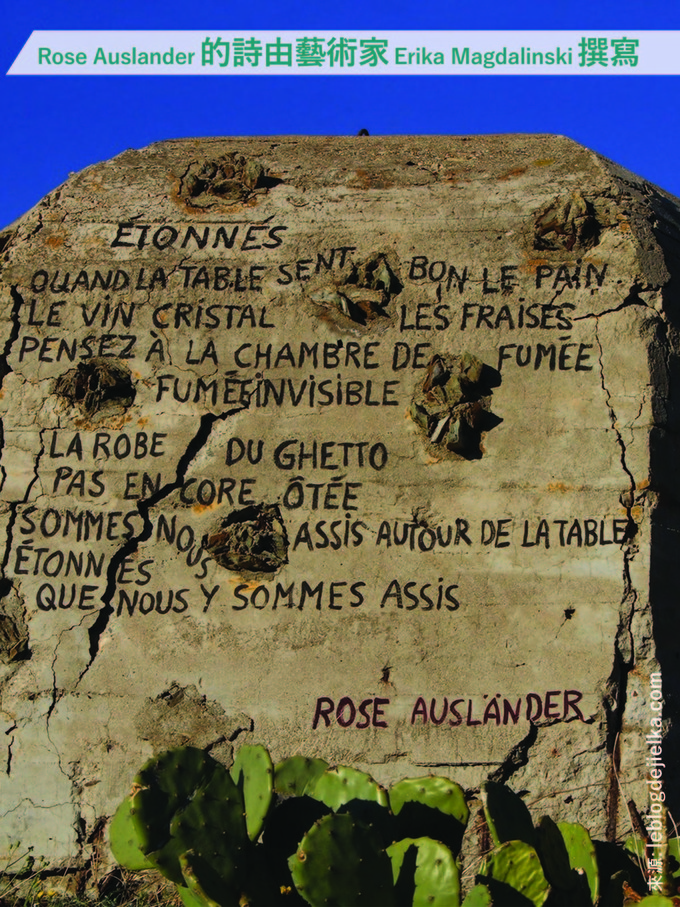 Rose Auslander 的詩由藝術家 Erika Magdalinski 撰寫
ÉTONNÉS
QUAND LA TABLE SENT BON LE PAIN
LE VIN CRISTAL LES FRAISES
PENSEZ À LA CHAMBRE DE FUMÉE
FUMÉE INVISIBLE
LA ROBE DU GHETTO
PAS EN CORE ÔTÉE
SOMMES NOUS ASSIS AUTOUR DE LA TABLE
ÉTONNÉS
QUE NOUS Y SOMMES ASSIS
ROSE AUSLÄNDER
來源: leblogdejielka.com